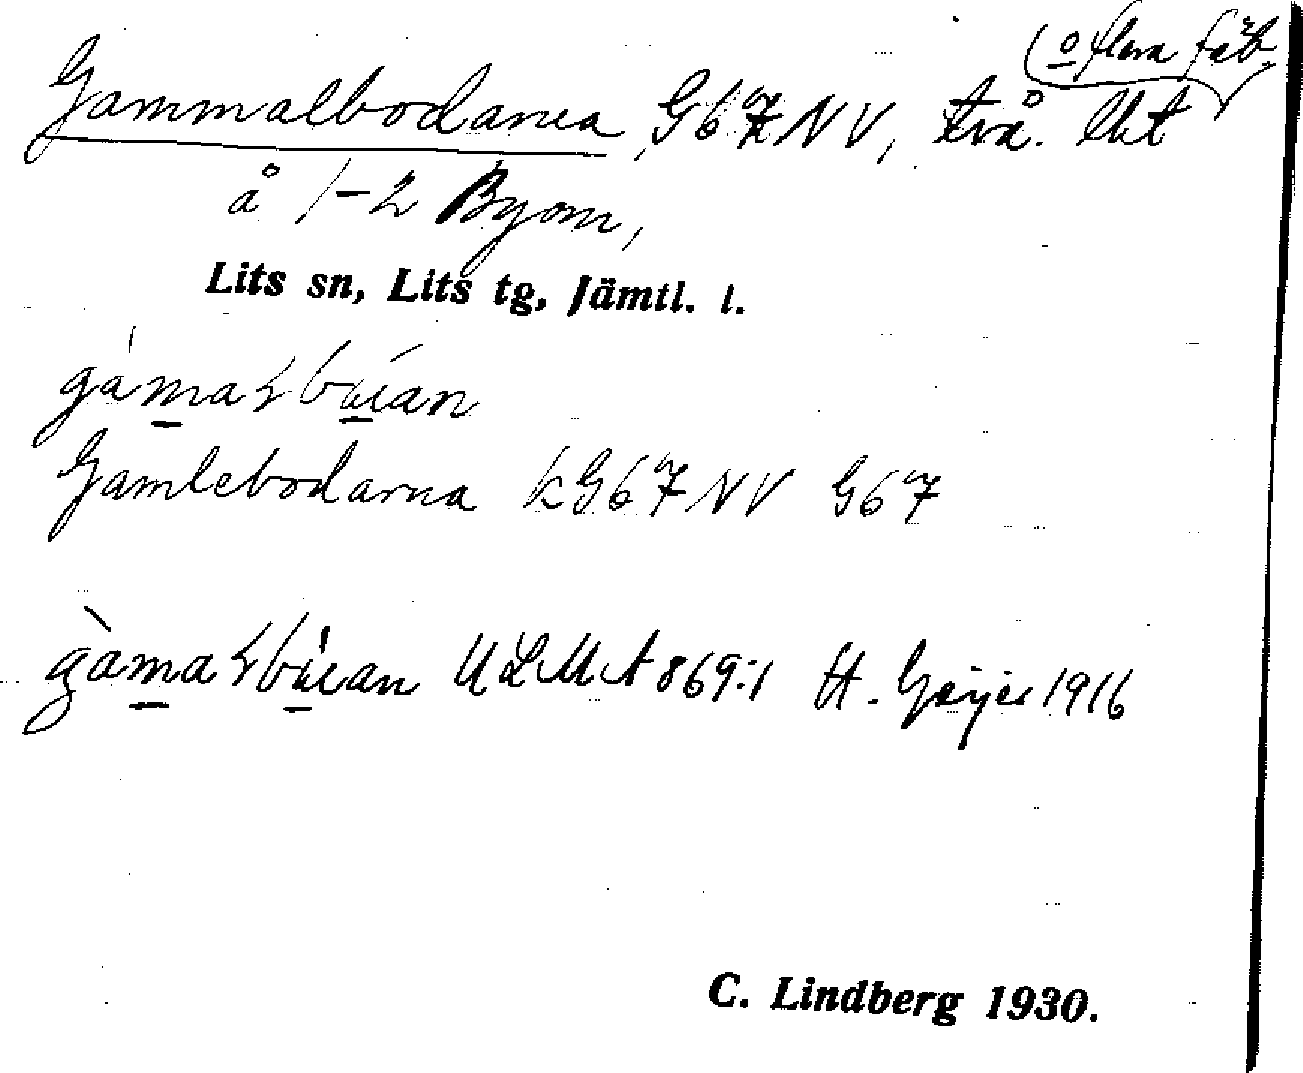 (o flera fäb.
Gammalbodarna, G67NV, två. lht
å 1-2 Byom,
Lits sn, Lits tg, Jämtl. l.
Gamlebodarna kG67NV G67
ULMA 869:1 H. Geijer 1916
C. Lindberg 1930.